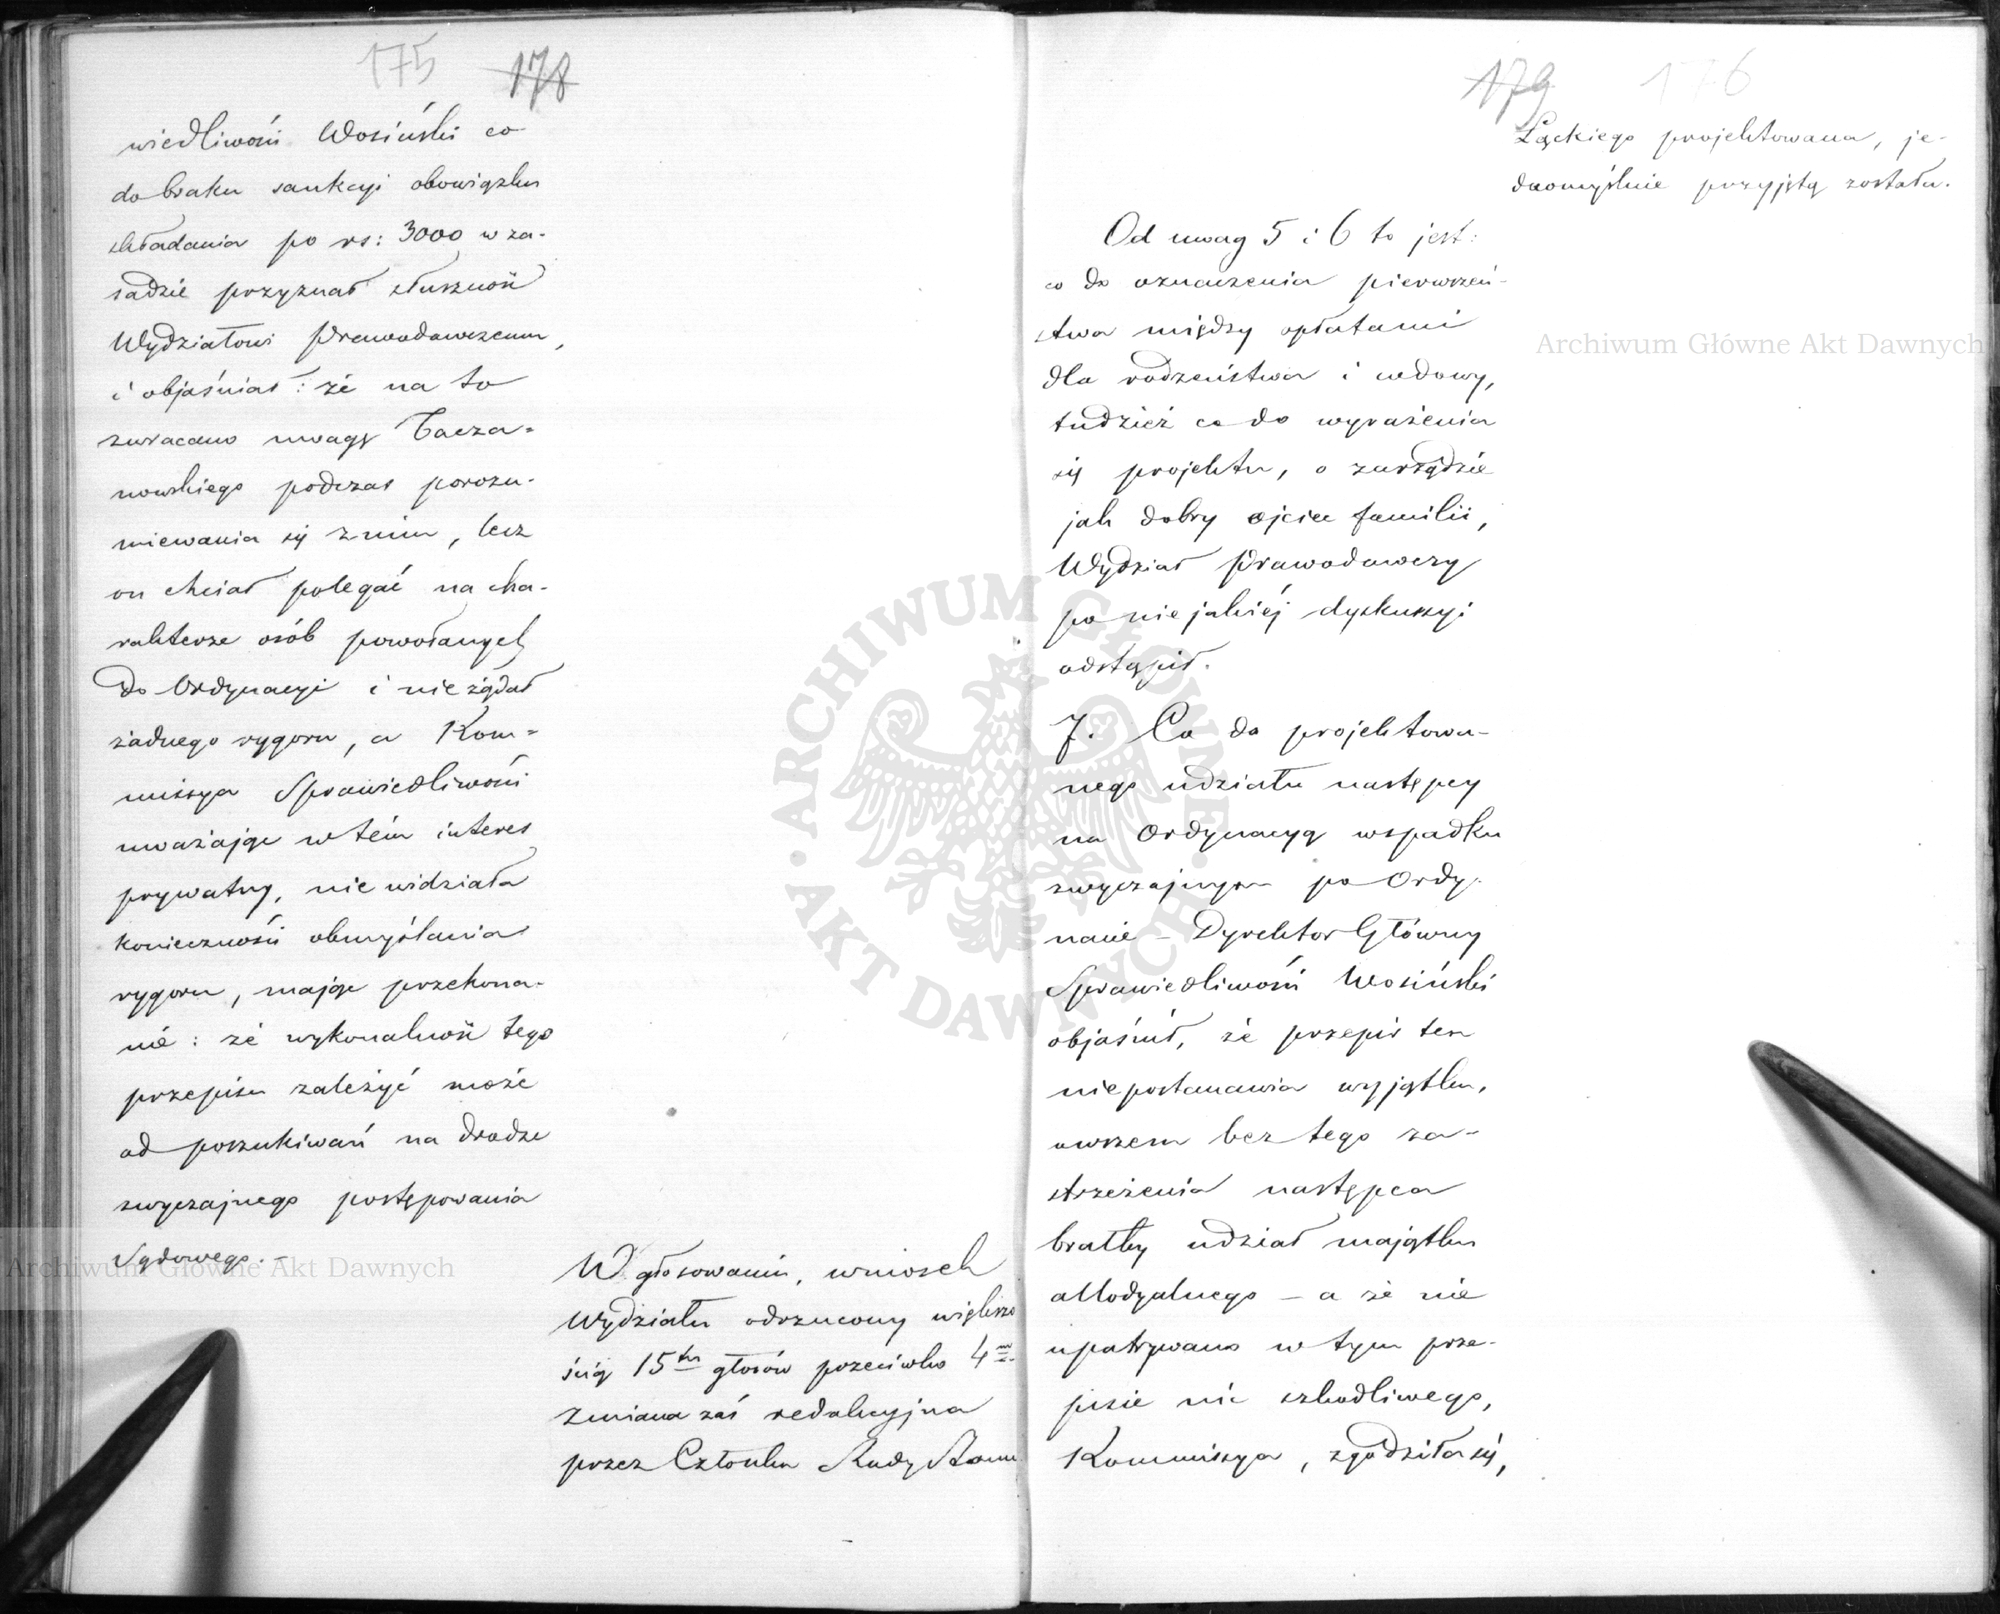 175 178
wiedliwości Wosiński co
do braku sankcyi obowiązku
składania po rs: 3000 w za-
sadzie przyznał słuszność
Wydziałowi Prawodawczemu,
i objaśniał: że na to
zwracano uwagę Tacza=
nowskiego podczas porozu-
miewania się z nim, lecz
on chciał polegać na cha-
rakterze osób powołanych
do Ordynacyi i nie żądał
żadnego rygoru, a Kom=
missya Sprawiedliwości
uważając w tém interes
prywatny, nie widziała
konieczności obmyślania
rygoru, mając przekona-
nie: że wykonalność tego
przepisu zależyć może
od poszukiwań na drodze
zwyczajnego postępowania
Sądowego. –
W głosowaniu, wniosek
Wydziału odrzucony większo
ścią 15tu głosów przeciwko 4m
zmiana zaś redakcyjna
przez Członka Rady Stanu
179 176
Łąckiego projektowana, je-
dnomyślnie przyjętą została.
Od uwag 5 i 6 to jest:
co do oznaczenia pierwszeń-
stwa między opłatami
dla rodzeństwa i wdowy,
tudzież co do wyrażenia
się projektu, o zarządzie
jak dobry ojciec familii,
Wydział Prawodawczy
po niejakiéj dyskussyi
odstąpił.
7. Co do projektowa-
nego udziału następcy
na Ordynacyą w spadku
zwyczajnym po Ordy-
nacie – Dyrektor Główny
Sprawiedliwości Wosiński
objaśnił, że przepis ten
nie postanawia wyjątku,
owszem bez tego za-
strzeżenia następca
brałby udział majątku
allodyalnego – a że nie
upatrywano w tym prze-
pisie nic szkodliwego,
Kommissya, zgodziła się,
Archiwum Główne Akt Dawnych
Archiwum Główne Akt Dawnych
ARCHIWUM GŁÓWNE AKT DAWNYCH